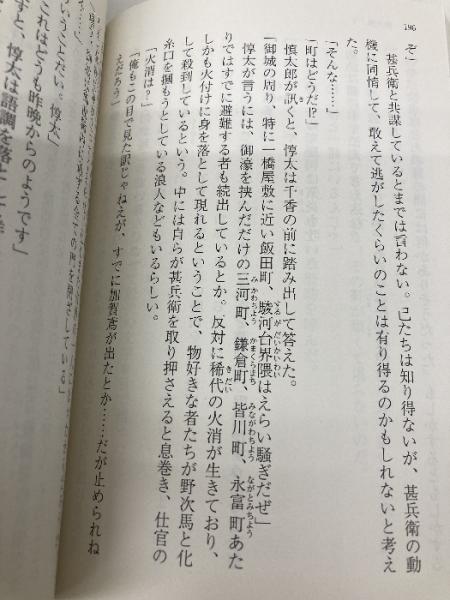 196
ぞ」
甚兵衛と共謀しているとまでは言わない。己たちは知り得ないが、甚兵衛の動
機に同情して、敢えて逃がしたくらいのことは有り得るのかもしれないと考え
た。
「そんな……」
「町はどうだ!?」
慎太郎が訊くと、惇太は千香の前に踏み出して答えた。
「御城の周り、特に一橋屋敷に近い飯田町、駿河台界隈はえらい騒ぎだぜ」
惇太が言うには、御濠を挟んだだけの三河町、鎌倉町、皆川町、永富町あた
りではすでに避難する者も続出しているとか。反対に稀代の火消が生きており、
しかも火付けに身を落として現れるということで、物好きな者たちが野次馬と化
して殺到しているという。中には自らが甚兵衛を取り押さえると息巻き、仕官の
糸口を掴もうとしている浪人などもいるらしい。
「火消は?」
「俺もこの目で見た訳じゃねえが、すでに加賀鳶が出たとか……だが止められね
えだろう」
ということだい。惇太」
これはどうも昨晩からのようです」
すと、惇太は語調を落と